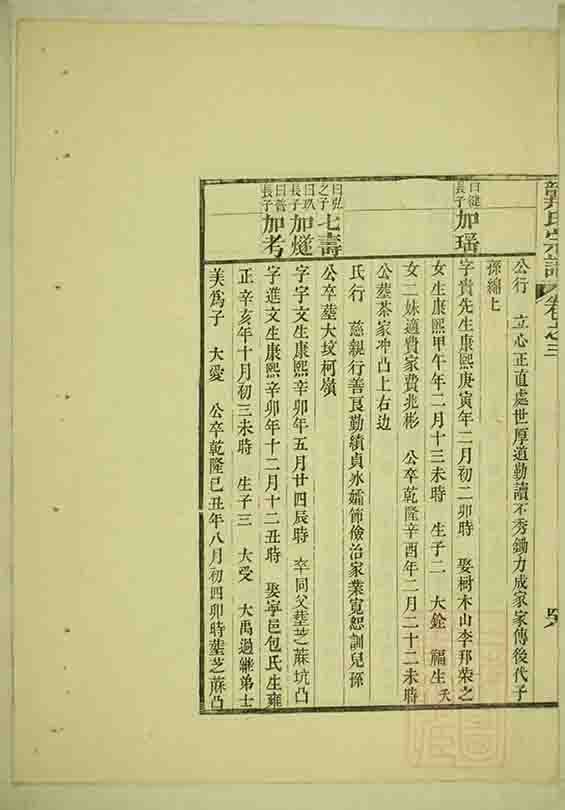 龔氏宗譜 卷之三
公行 立心正直處世厚道勤讀不秀鋤力成家家傳後代子
孫綿七
曰健長子 加瑶
字貴先生康熙庚寅年二月初二卯時 娶树木山李邦荣之
女生康熙甲午年二月十三未時 生子二 大銓 福生夭
女二妹適費家費兆彬 公卒乾隆辛酉年二月二十二未時
公塟茶家冲凸上右边
氏行 慈親行善良勤績貞氷孀節儉治家業寬恕訓兒孫
曰弘之子 七壽
公卒塟大坟柯嶺
曰玖長子 加燧
字字文生康熙辛卯年五月廿四辰時 卒同父塟芝蔴坑凸
曰普長子 加考
字進文生康熙辛卯年十二月十二丑時 娶寧邑包氏生雍
正辛亥年十月初三未時 生子三 大受 大禹過継弟士
美為子 大愛 公卒乾隆己丑年八月初四卯時塟芝蔴凸